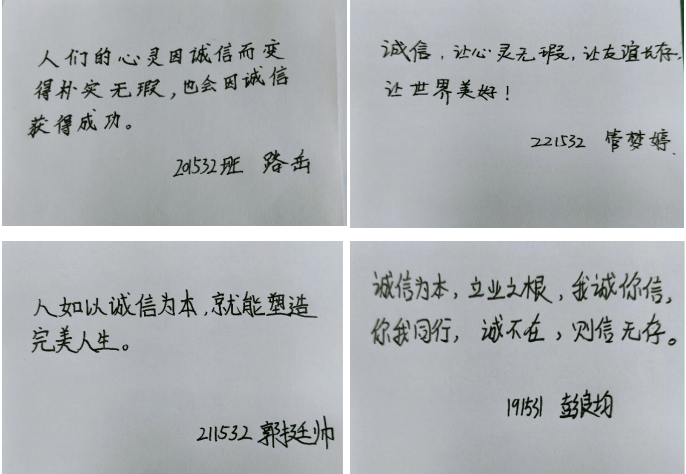 人们的心灵因诚信而变
得朴实无瑕，也会因诚信
获得成功。
201532班 路岳
诚信，让心灵无瑕，让友谊长存，
让世界美好！
221532 管梦婷
人如以诚信为本，就能塑造
完美人生。
211532 郭廷帅
诚信为本，立业之根，我诚你信，
你我同行，诚不在，则信无存。
191531 彭良均